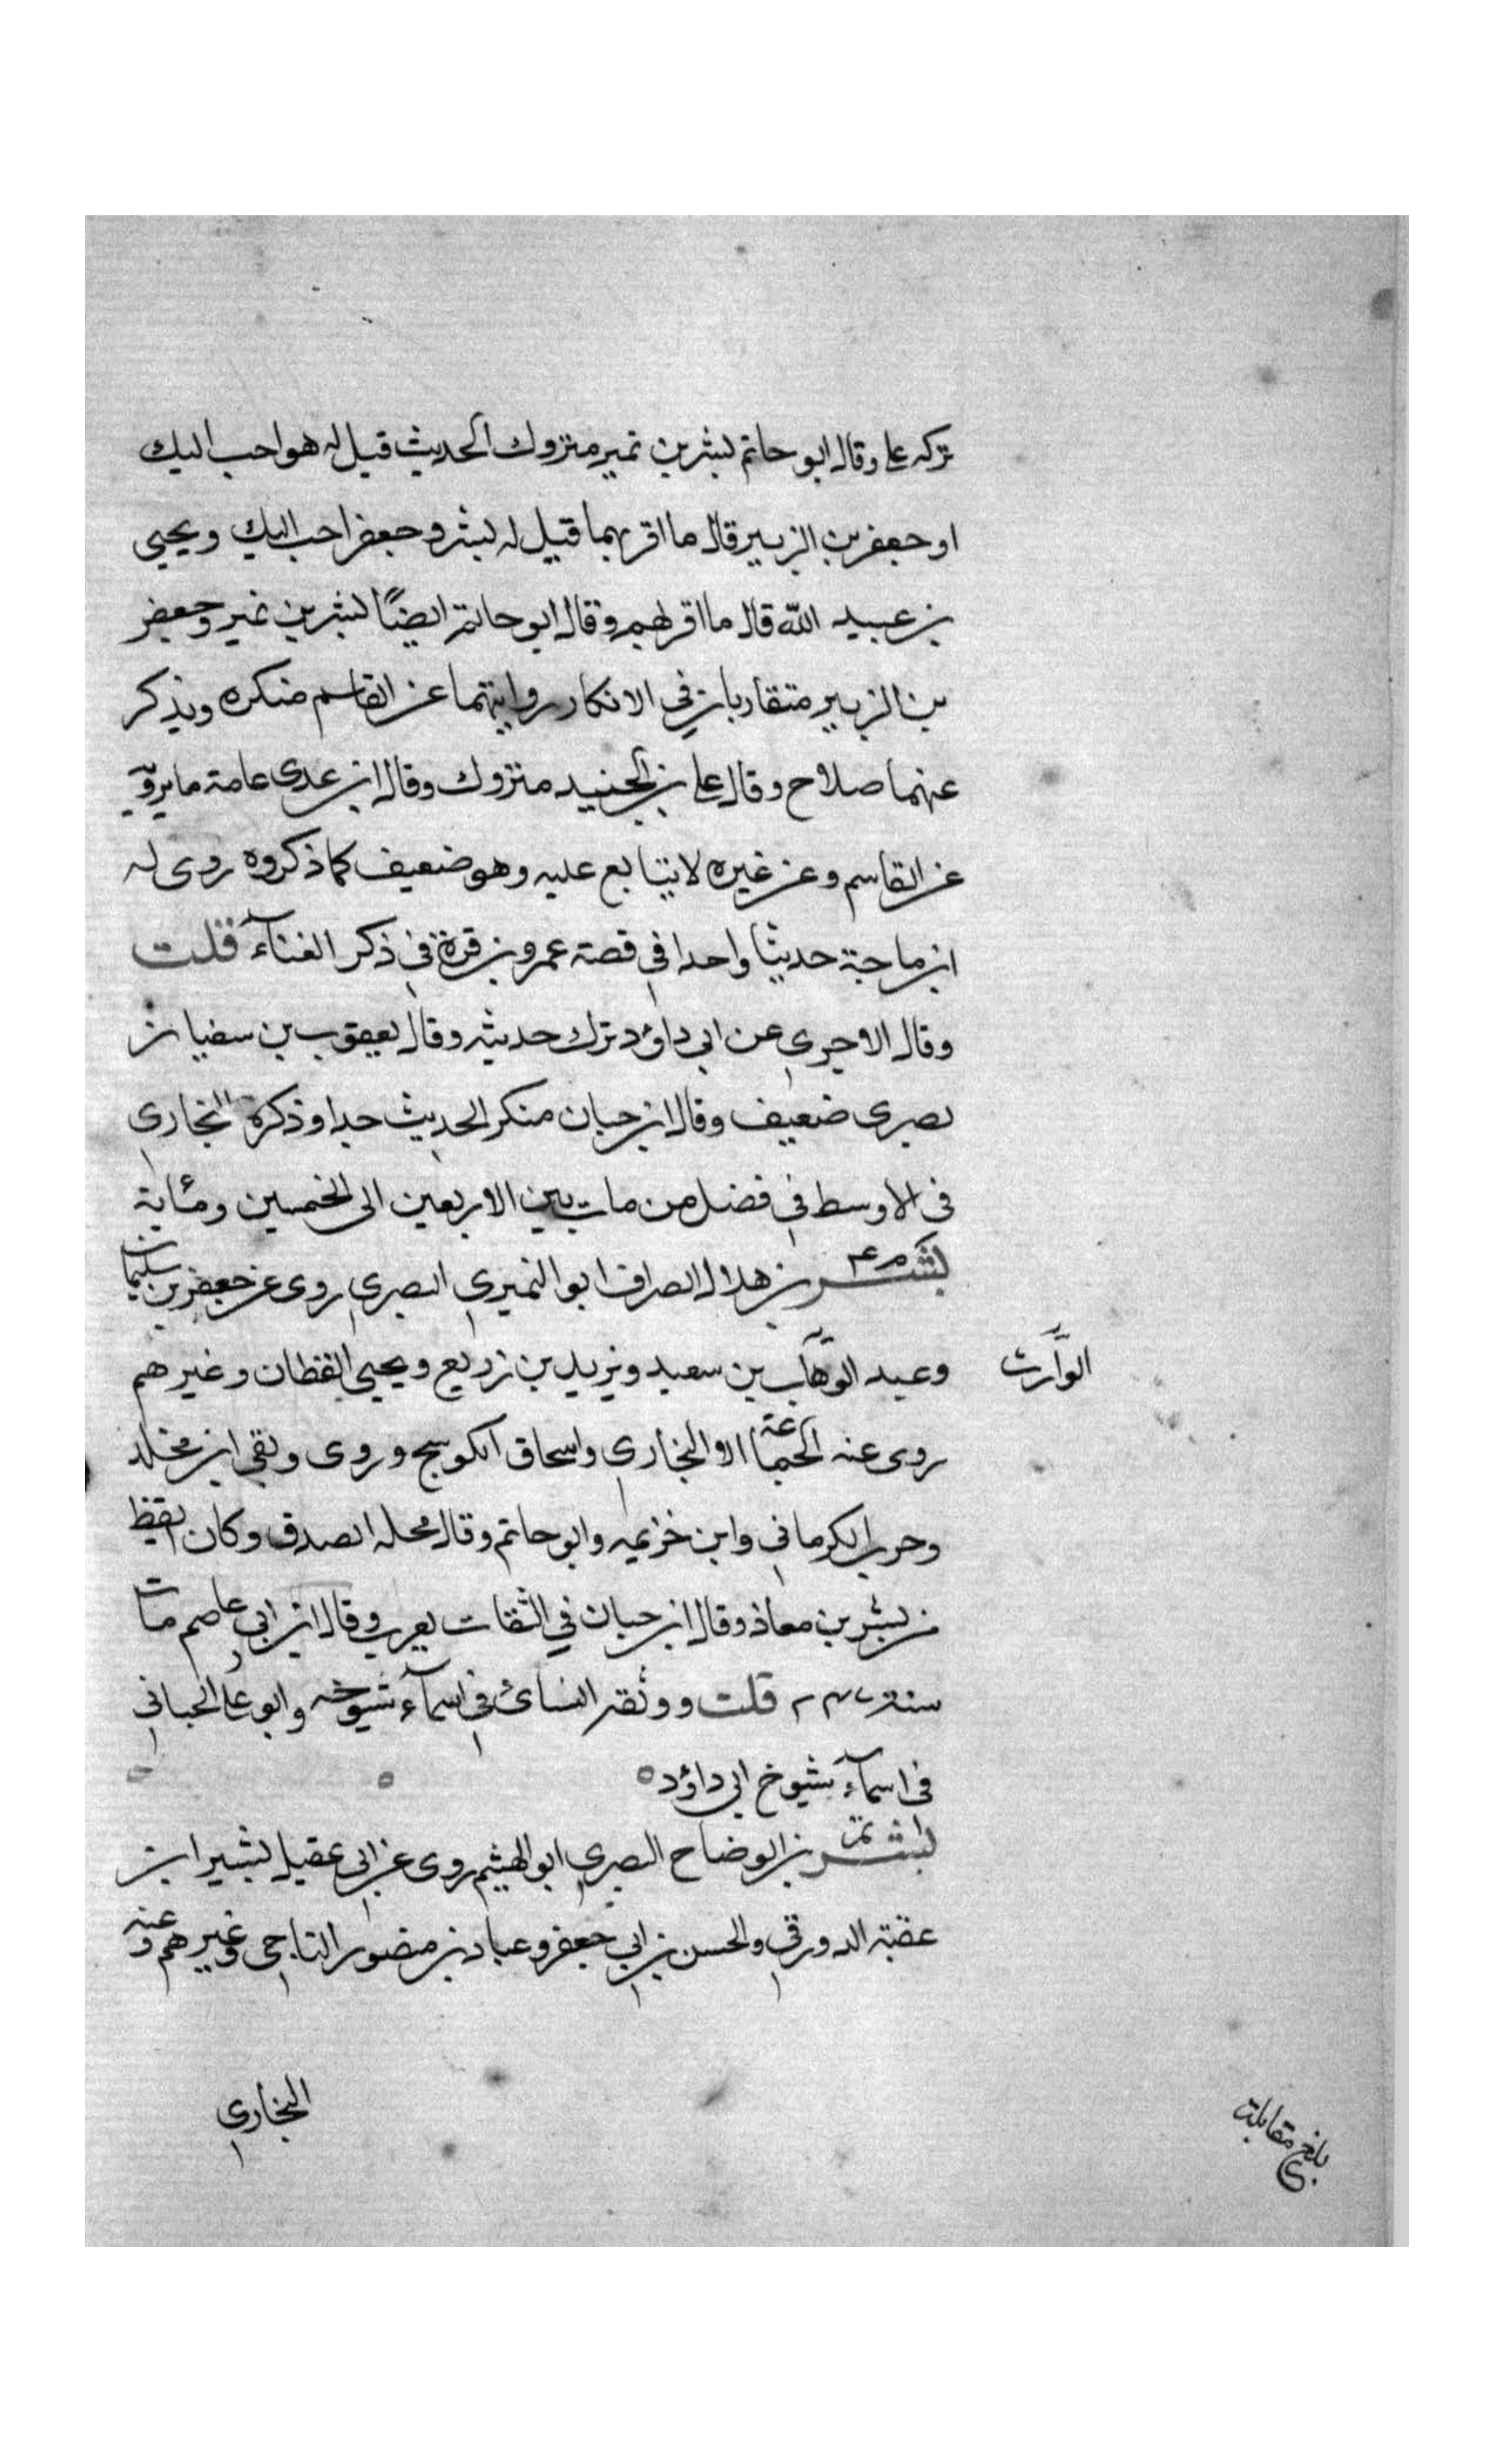 تركه علي وقال ابو حاتم بشر بن نمير متروك الحديث قيل له هو احب اليك
او جعفر بن الزبير قال ما اقربهما قيل له بشر وجعفر احب اليك ويحيى
بن عبيد الله قال ما اقربهم وقال ابو حاتم ايضًا بشر بن نمير وجعفر
بن الزبير متقاربان في الانكار روايتهما عن القاسم منكره ويذكر
عنهما صلاح وقال علي بن الجنيد متروك وقال ابن عدى عامة ما يرويه
عن القاسم وعن غيره لا يتابع عليه وهو ضعيف كما ذكروه روى له
ابن ماجة حديثا واحدا في قصة عمرو بن قرة في ذكر الغنآء قلت
وقال الاجري عن ابي داؤد ترك حديثه وقال يعقوب بن سفيان
بصرى ضعيف وقال ابن حبان منكر الحديث جدا وذكره البخاري
في الاوسط في فضل من مات بين الاربعين الى الخمسين ومئاية
بشر م ٤ بن هلال الصراف ابو النميري البصري روى عن جعفر بن سليمان
وعبد الوهاب بن سعيد ويزيد بن زريع ويحيى القطان وغيرهم
الوارث
روى عنه الجماعة الا البخاري واسحاق الكوسج وروى وبقي ابن مخلد
وحرب الكرماني وابن خزيمه وابو حاتم وقال محله الصدق وكان ايقظ
من بشر بن معاذ وقال ابن حبان في الثقات يغرب وقال ابن ابي عاصم مات
سنة ٢٤٧ قلت ووثقه النسائ في اسمآء شيوخه وابو علي الجياني
في اسمآء شيوخ ابي داؤد
بشر تم بن الوضاح البصري ابو الهيثم روى عن ابي عقيل بشير ابن
عقبة الدورقي والحسن بن ابي جعفر وعباد بن منصور الناجي وغيرهم وعنه
البخاري
بلغ مقابلة